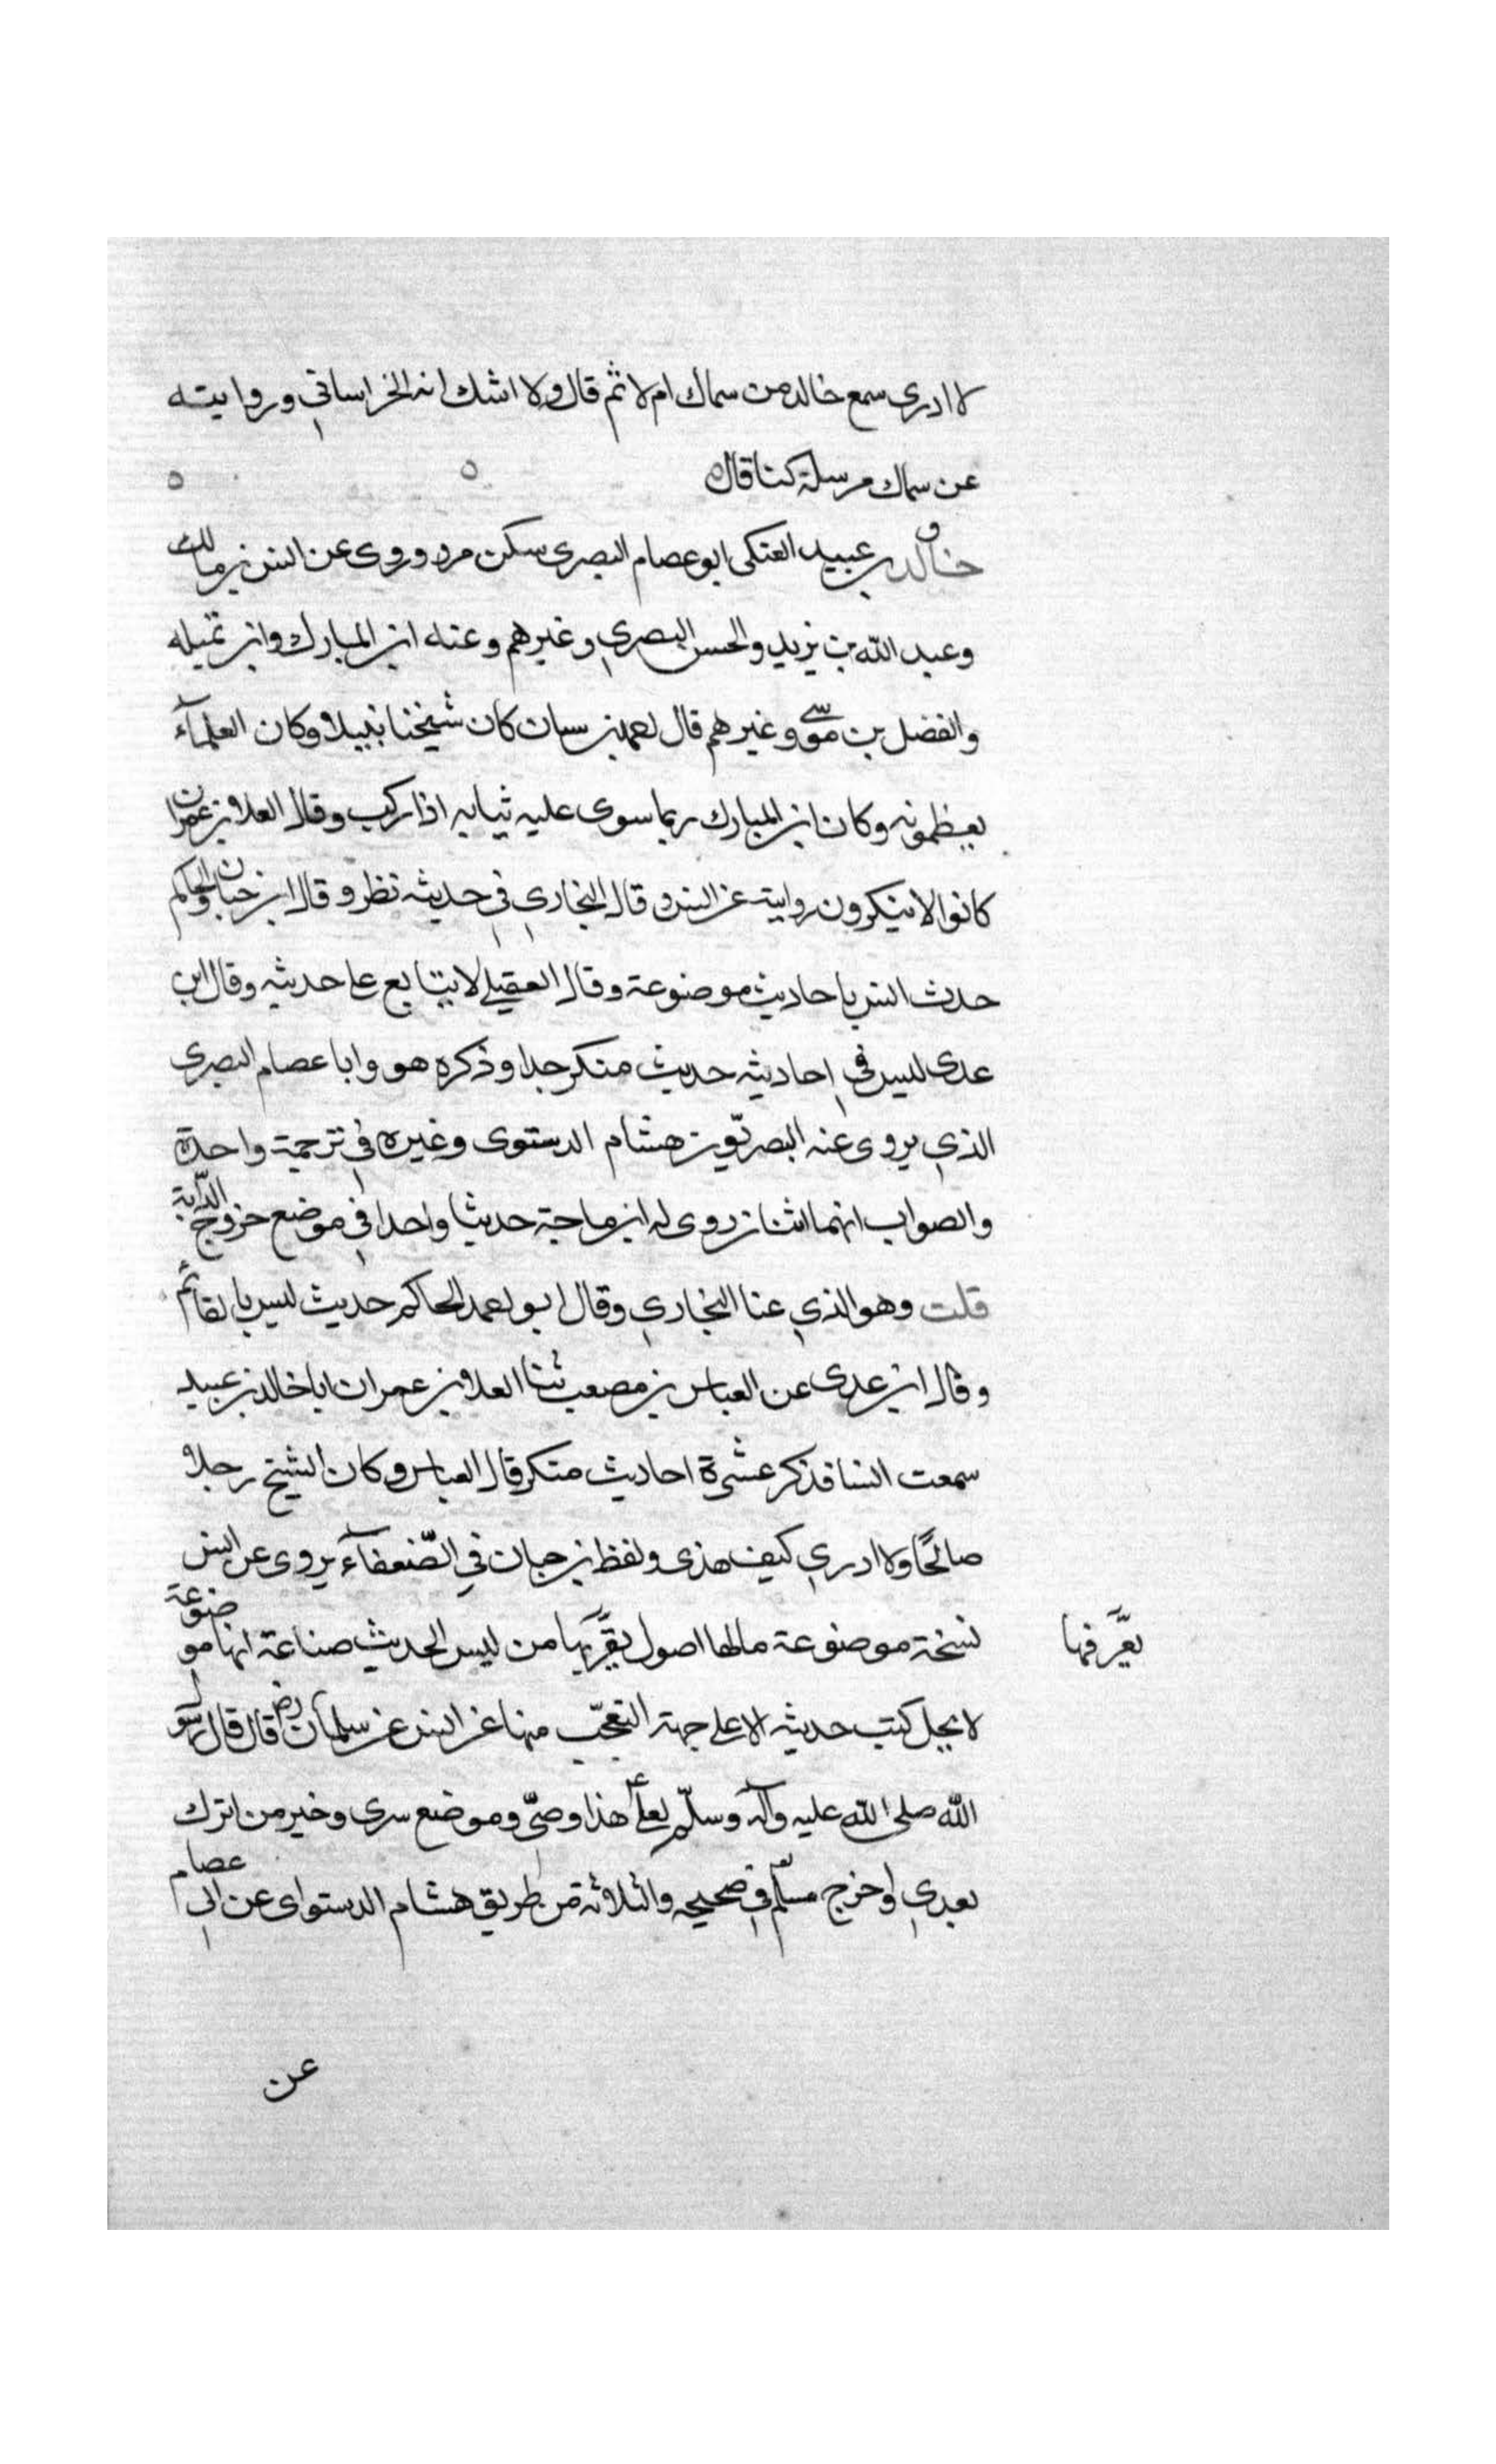 لا ادرى سمع خالد من سماك ام لا ثم قال ولا اشك انه الخراساني وروايته
عن سماك مرسلة كتا قال
ق
خالد بن عبيد العتكى ابو عصام البصرى سكن مرو وروى عن انس بن مالك
وعبد الله بن يزيد والحسن البصري وغيرهم وعنه ابن المبارك وابن تميله
والفضل بن موسى وغيرهم قال احمد بن سيان كان شيخنا نبيلا وكان العلمآء
يعظمونه وكان ابن المبارك ربما سوى عليه ثيابه اذا ركب وقال العلا بن عمران
كانوا لا ينكرون رواية عن انس وقال البخاري في حديثه نظر وقال ابن حبان والحاكم
حدث انس باحاديث موضوعة وقال العقيلي لا يتابع على حديثه وقال ابن
عدى ليس في احاديثه حديث منكر جدا وذكره هو وابا عصام البصرى
الذي يروى عنه البصريون هشام الدستوى وغيره في ترجمة واحدة
والصواب انهما اثنان روى له ابن ماجة حديثا واحدا في موضع خروج الدآبة
قلت وهو الذي عنا البخاري وقال ابو احمد الحاكم حديث ليس بالقائم
وقال ابن عدى عن العباس بن مصعب ثنا العلا بن عمران ابا خالد بن عبيد
سمعت انسا فذكر عشرة احاديث منكر قال العباس وكان الشيخ رجلا
صالحًا ولا ادري كيف هذى ولفظ بن حبان في الضّعفآء يروى عن انس
نسخة موضوعة مالها اصول يقرّبها من ليس الحديث صناعة انها موضوعة
يعرّفها
لا يحل كتب حديثه الا على جهة التعجّب منها عن انس عن سلمان رض قال قال رسول
الله صلى الله عليه وآله وسلّم لعلي ع هذا وصيّ وموضع سرى وخير من اترك
بعدي واخرج مسلم في صحيحه والثلاثة من طريق هشام الدستواى عن ابي عصام
عن